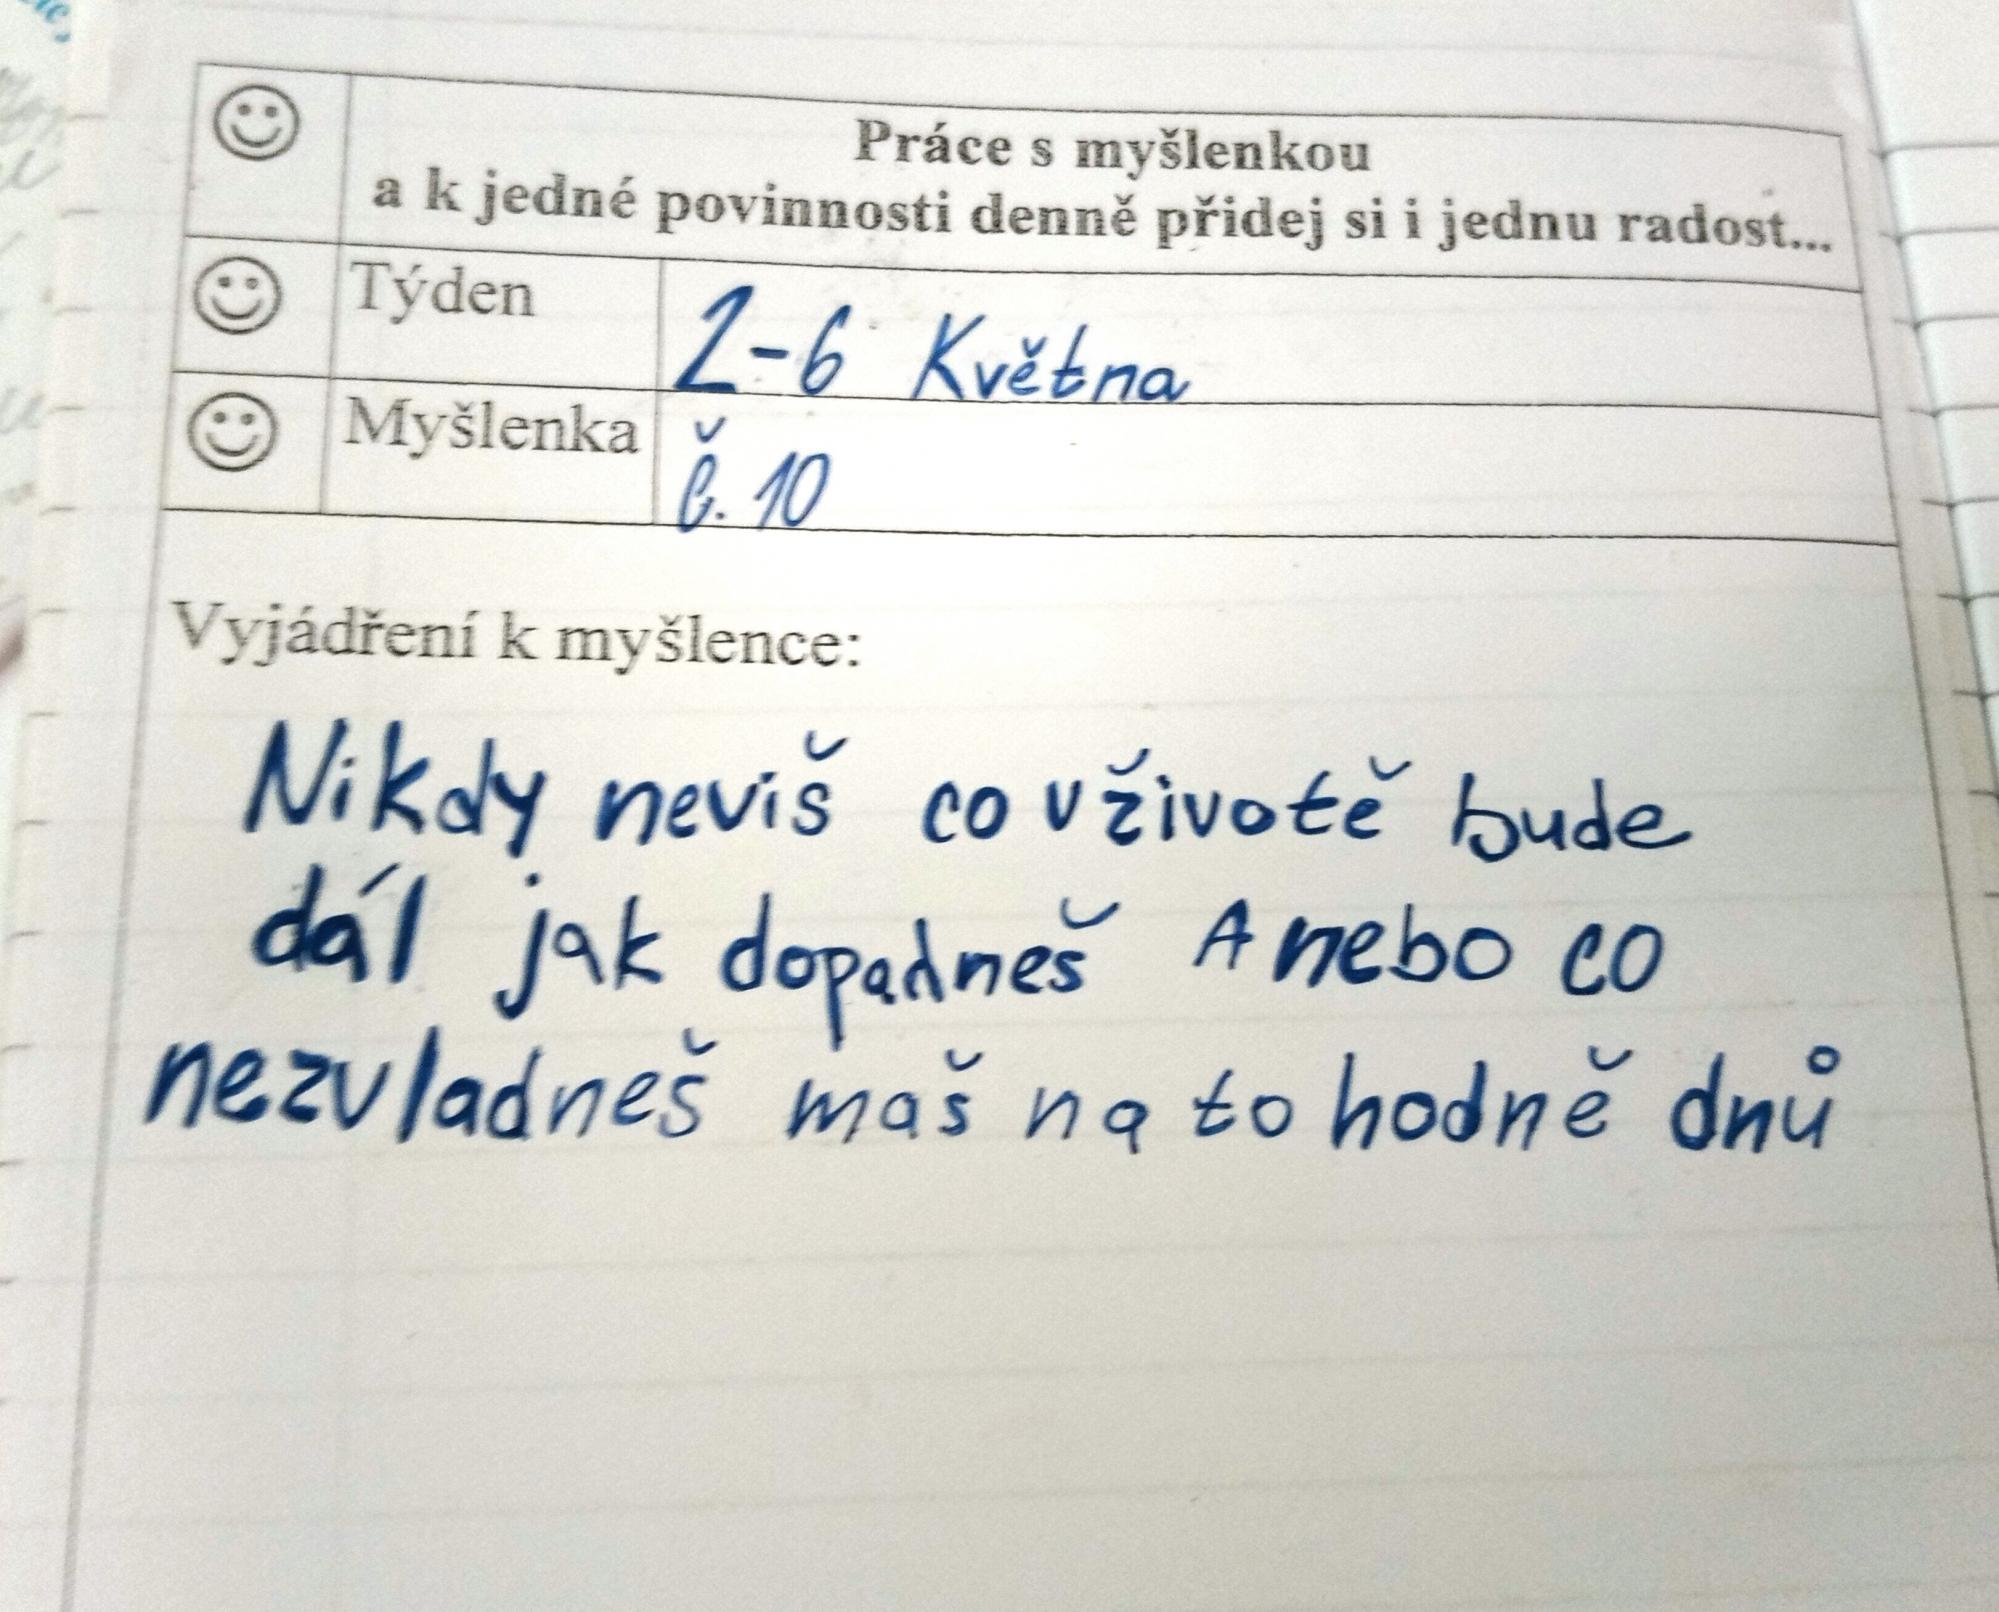 Práce s myšlenkou
a k jedné povinnosti denně přidej si i jednu radost...
Týden 2-6 Května
Myšlenka č. 10
Vyjádření k myšlence:
Nikdy neviš co v životě bude
dál jak dopadneš A nebo co
nezvladneš maš na to hodně dnů